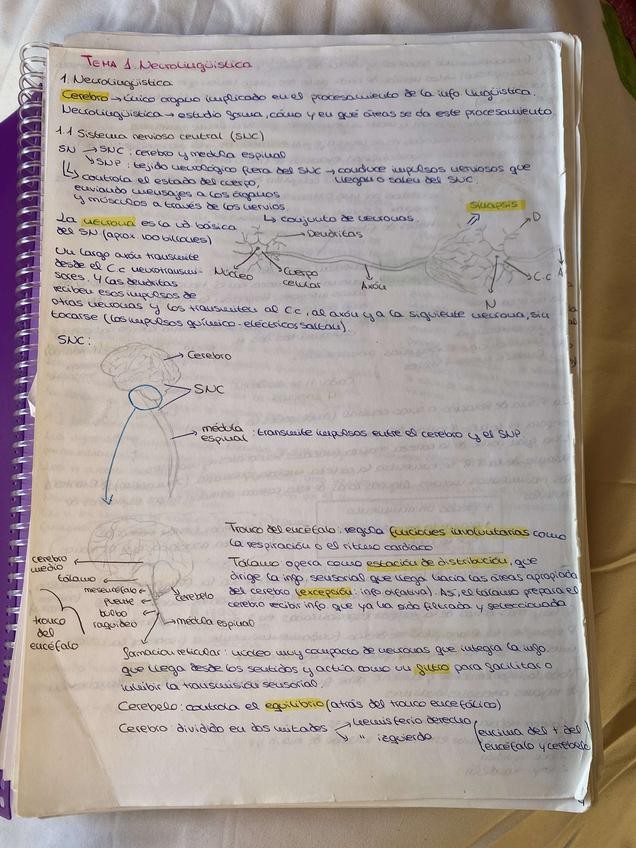 TEMA 1. Neurolingüística
1. Neurolingüística
Cerebro → único órgano implicado en el procesamiento de la info lingüística.
Neurolingüística → estudio forma, cómo y en qué áreas se da este procesamiento
1.1 Sistema nervioso central (SNC)
SN → SNC: cerebro y médula espinal
↘ SNP: tejido neurológico fuera del SNC → conduce impulsos nerviosos que
llegan o salen del SNC.
↳ controla el estado del cuerpo,
enviando mensajes a los órganos
y músculos a través de los nervios
↳ conjunto de neuronas
sinapsis
La neurona es la ud básica
del SN (aprox. 100 billones)
Dendritas
D
Núcleo
Cuerpo
celular
Axón
N
C.C
A
Un largo axón transmite
desde el C.C neurotransmi-
sores, y las dendritas
reciben esos impulsos de
otras neuronas y los transmiten al C.C, al axón y a la siguiente neurona, sin
tocarse (los impulsos químico-eléctricos saltan).
SNC:
Cerebro
SNC
médula
espinal
: transmite impulsos entre el cerebro y el SNP
Tronco del encéfalo: regula funciones involuntarias como
la respiración o el ritmo cardíaco
Tálamo opera como estación de distribución, que
dirige la info. sensorial que llega hacia las áreas apropiadas
del cerebro (excepción: info olfativa). Así, el tálamo prepara el
cerebro recibir info que ya ha sido filtrada y seleccionada
cerebro
medio
tálamo
mesencéfalo
puente
bulbo
raquídeo
tronco
del
encéfalo
cerebelo
médula espinal
formación reticular: núcleo muy compacto de neuronas que integra la info.
que llega desde los sentidos y actúa como un filtro para facilitar o
inhibir la transmisión sensorial.
Cerebelo: controla el equilibrio (atrás del tronco encefálico)
Cerebro: dividido en dos mitades → hemisferio derecho
↘ " izquierdo
(encima del t. del
encéfalo y cerebelo)